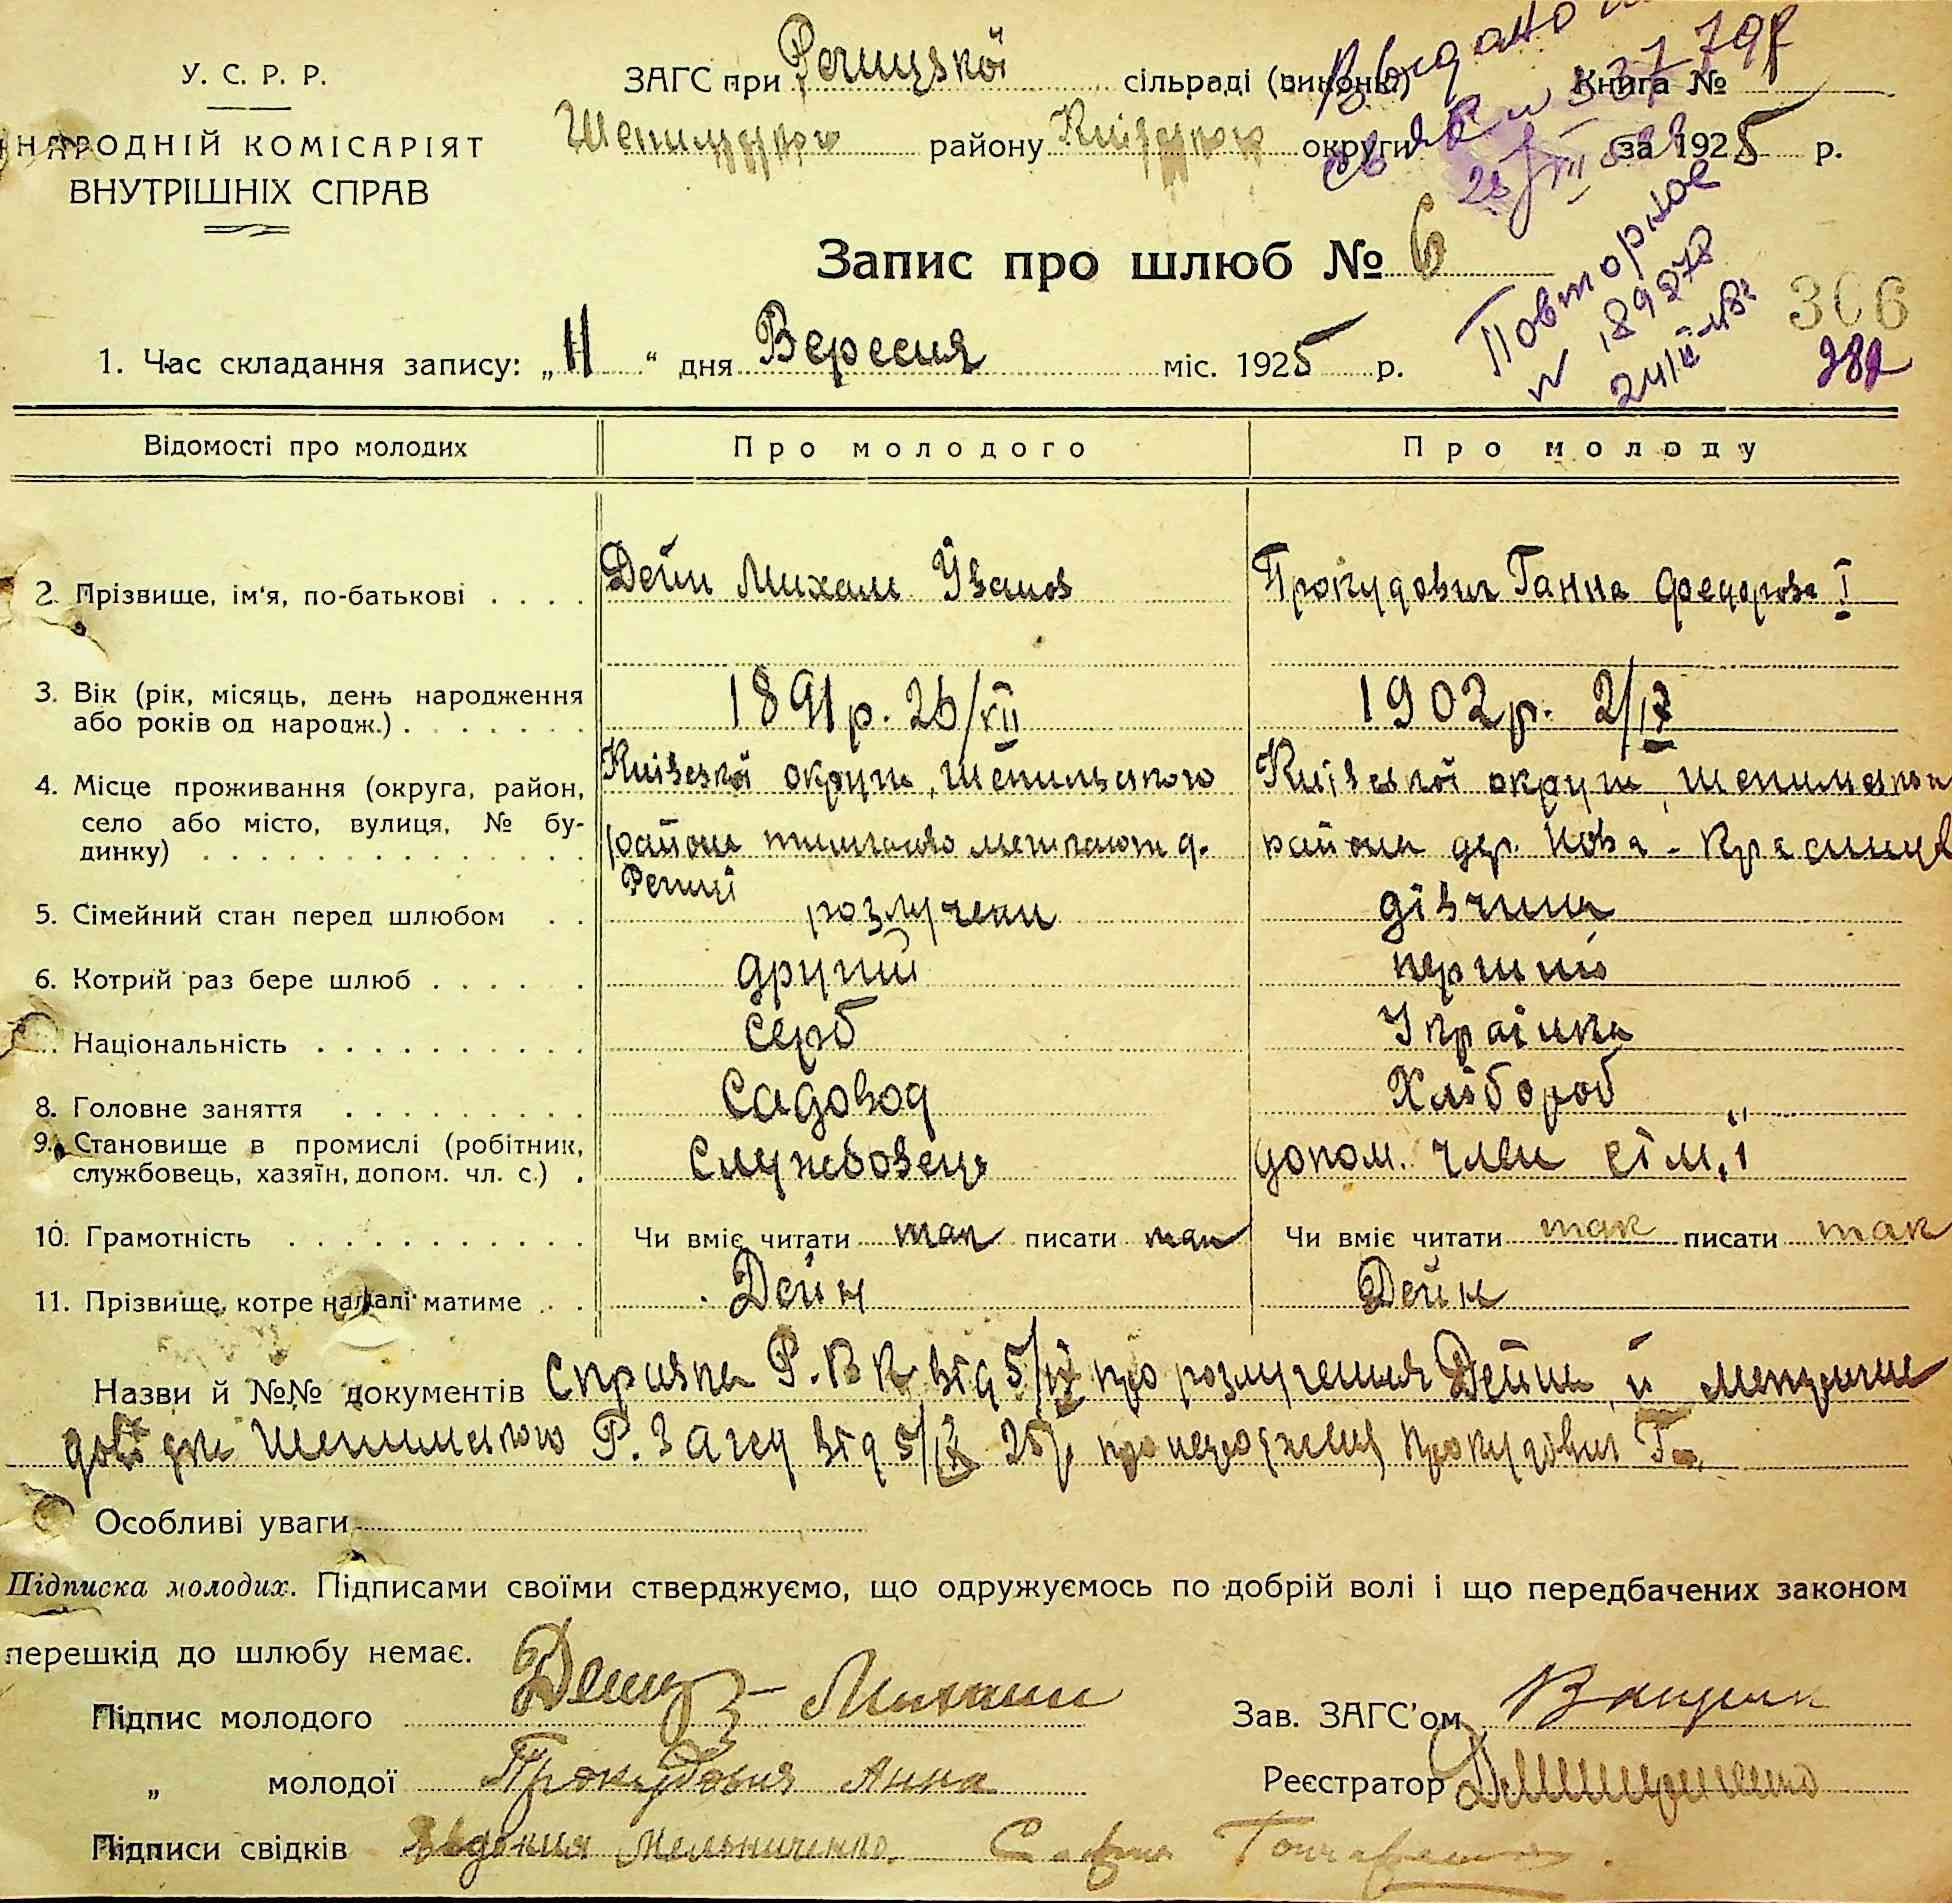 У. С. Р. Р.
НАРОДНІЙ КОМІСАРІЯТ
ВНУТРІШНІХ СПРАВ
ЗАГС при Речицької сільраді (виконк.) Книга №
району округи за 1925 р.
Видано
Повторное
№ 189278
Запис про шлюб № 6
306
282
1. Час складання запису: „11“ дня Вересня міс. 1925 р.
Відомості про молодих Про молодого Про молоду
2. Прізвище, ім'я, по-батькові . . . . Дейн Михаил Іванов Прокудович Ганна Федорова I
3. Вік (рік, місяць, день народження 1891 р. 26/XII 1902 р. 2/IX
або років од народж.) . . . . . . .
4. Місце проживання (округа, район, Київської округи, Шепилського Київської округи, Шепилського
село або місто, вулиця, № бу- района д. района дер. Нова-Красниця
динку) . . . . . . . . . . . . . . Речиці
5. Сімейний стан перед шлюбом . . розлучени дівчина
6. Котрий раз бере шлюб . . . . . . другий перший
7. Національність . . . . . . . . . . Серб Українка
8. Головне заняття . . . . . . . . . Садовод Хлібороб
9. Становище в промислі (робітник, Службовець допом. член сім'ї
службовець, хазяїн, допом. чл. с.) .
10. Грамотність . . . . . . . . . . . Чи вміє читати так писати так Чи вміє читати так писати так
11. Прізвище, котре надалі матиме . . Дейн Дейн
Назви й №№ документів Справка Р.В.К. від 5/IX про розлучення Дейна й
Р. Загсу від 5/IX 25 р. про народження Прокудович Г.
Особливі уваги
Підписка молодих. Підписами своїми стверджуємо, що одружуємось по добрій волі і що передбачених законом
перешкід до шлюбу немає.
Підпис молодого Дейн Михаил Зав. ЗАГС'ом
„ молодої Прокудович Анна Реєстратор
Підписи свідків Мельниченко